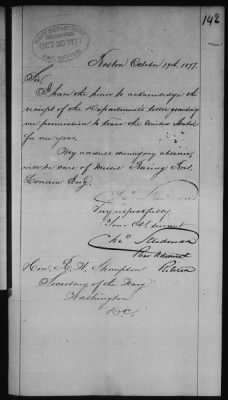 142
NAVY DEPARTMENT
RECEIVED
OCT 20 1877
Boston October 19th 1877.
Sir
I have the honor to acknowledge the
receipt of the Department's letter granting
me permission to leave the United States
for one year.
My address during my absence,
will be care of Messrs Baring Bros.
London Eng.
Very respectfully
Your Obt servant
Chs Steedman
Rear Admiral
Hon. R. W. Thompson
Secretary of the Navy
Washington
D.C.